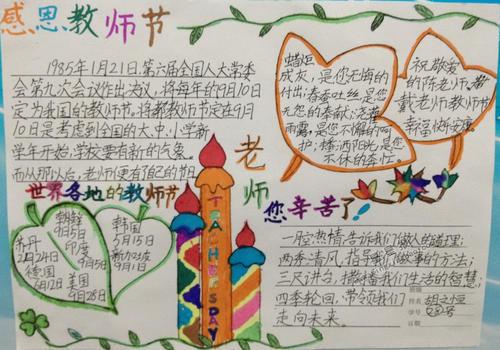 感恩教师节
1985年1月21日,第六届全国人大常委
会第九次会议作出决议,将每年的9月10日
定为我国的教师节。将教师节定在9月
10日是考虑到全国的大、中、小学新
学年开始,学校要有新的气象。
而从那以后,老师便有了自己的节日
蜡炬
成灰,是您无悔的
付出;春蚕吐丝,是您
无怨的奉献;
雨露,是您不懈的呵
护;播洒阳光,是您
不休的牵忙。
祝敬爱
的陈老师、曾
戴老师教师节
幸福快乐安康。
世界各地的教师节
朝鲜
9月5日
印度
9月5日
苏丹
2月24日
德国
6月12日
美国
9月28日
韩国
5月15日
新加坡
9月1日
TEACHER'S DAY
老师
您辛苦了!
一腔热情,告诉我们做人的道理;
两季清风,指导我们做事的方法;
三尺讲台,播种我们生活的智慧;
四季轮回,带领我们
走向未来。
班级
姓名
学号
日期